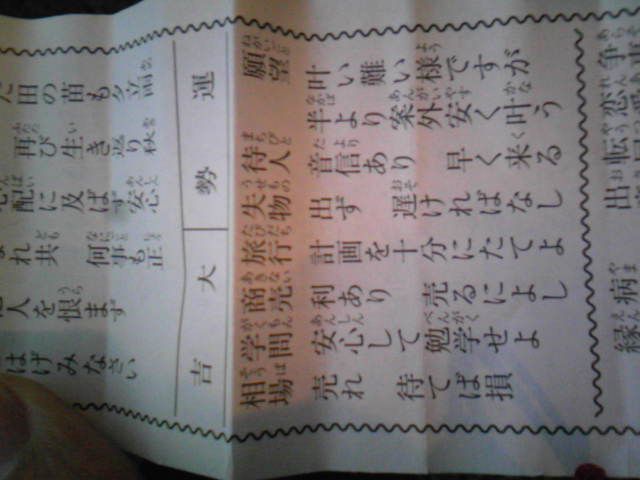 た田の苗も夕立
再び生き返り秋
配に及ばず安心
れ共 何事も正
人を恨まず
はげみなさい
運勢 大吉
願望 叶い難い様ですが
半より案外安く叶う
待人 音信あり 早く来る
失物 出ず 遅ければなし
旅行 計画を十分にたてよ
商売 利あり 売るによし
学問 安心して勉学せよ
相場 売れ 待てば損
争
恋
転
出
病
縁